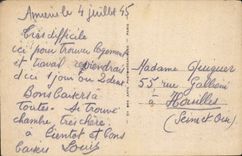 Amiens le 4 juillet 45
Très difficile
ici pour trouver logement
et travail reviendrai
d'ici 1 jour ou 2 
Bons Baisers à
toutes. Si trouve
chambre très chère.
à Bientot et Bons
Baisers Louis
Madame
55, rue Gallieni
à Houilles
(Seine et Oise)